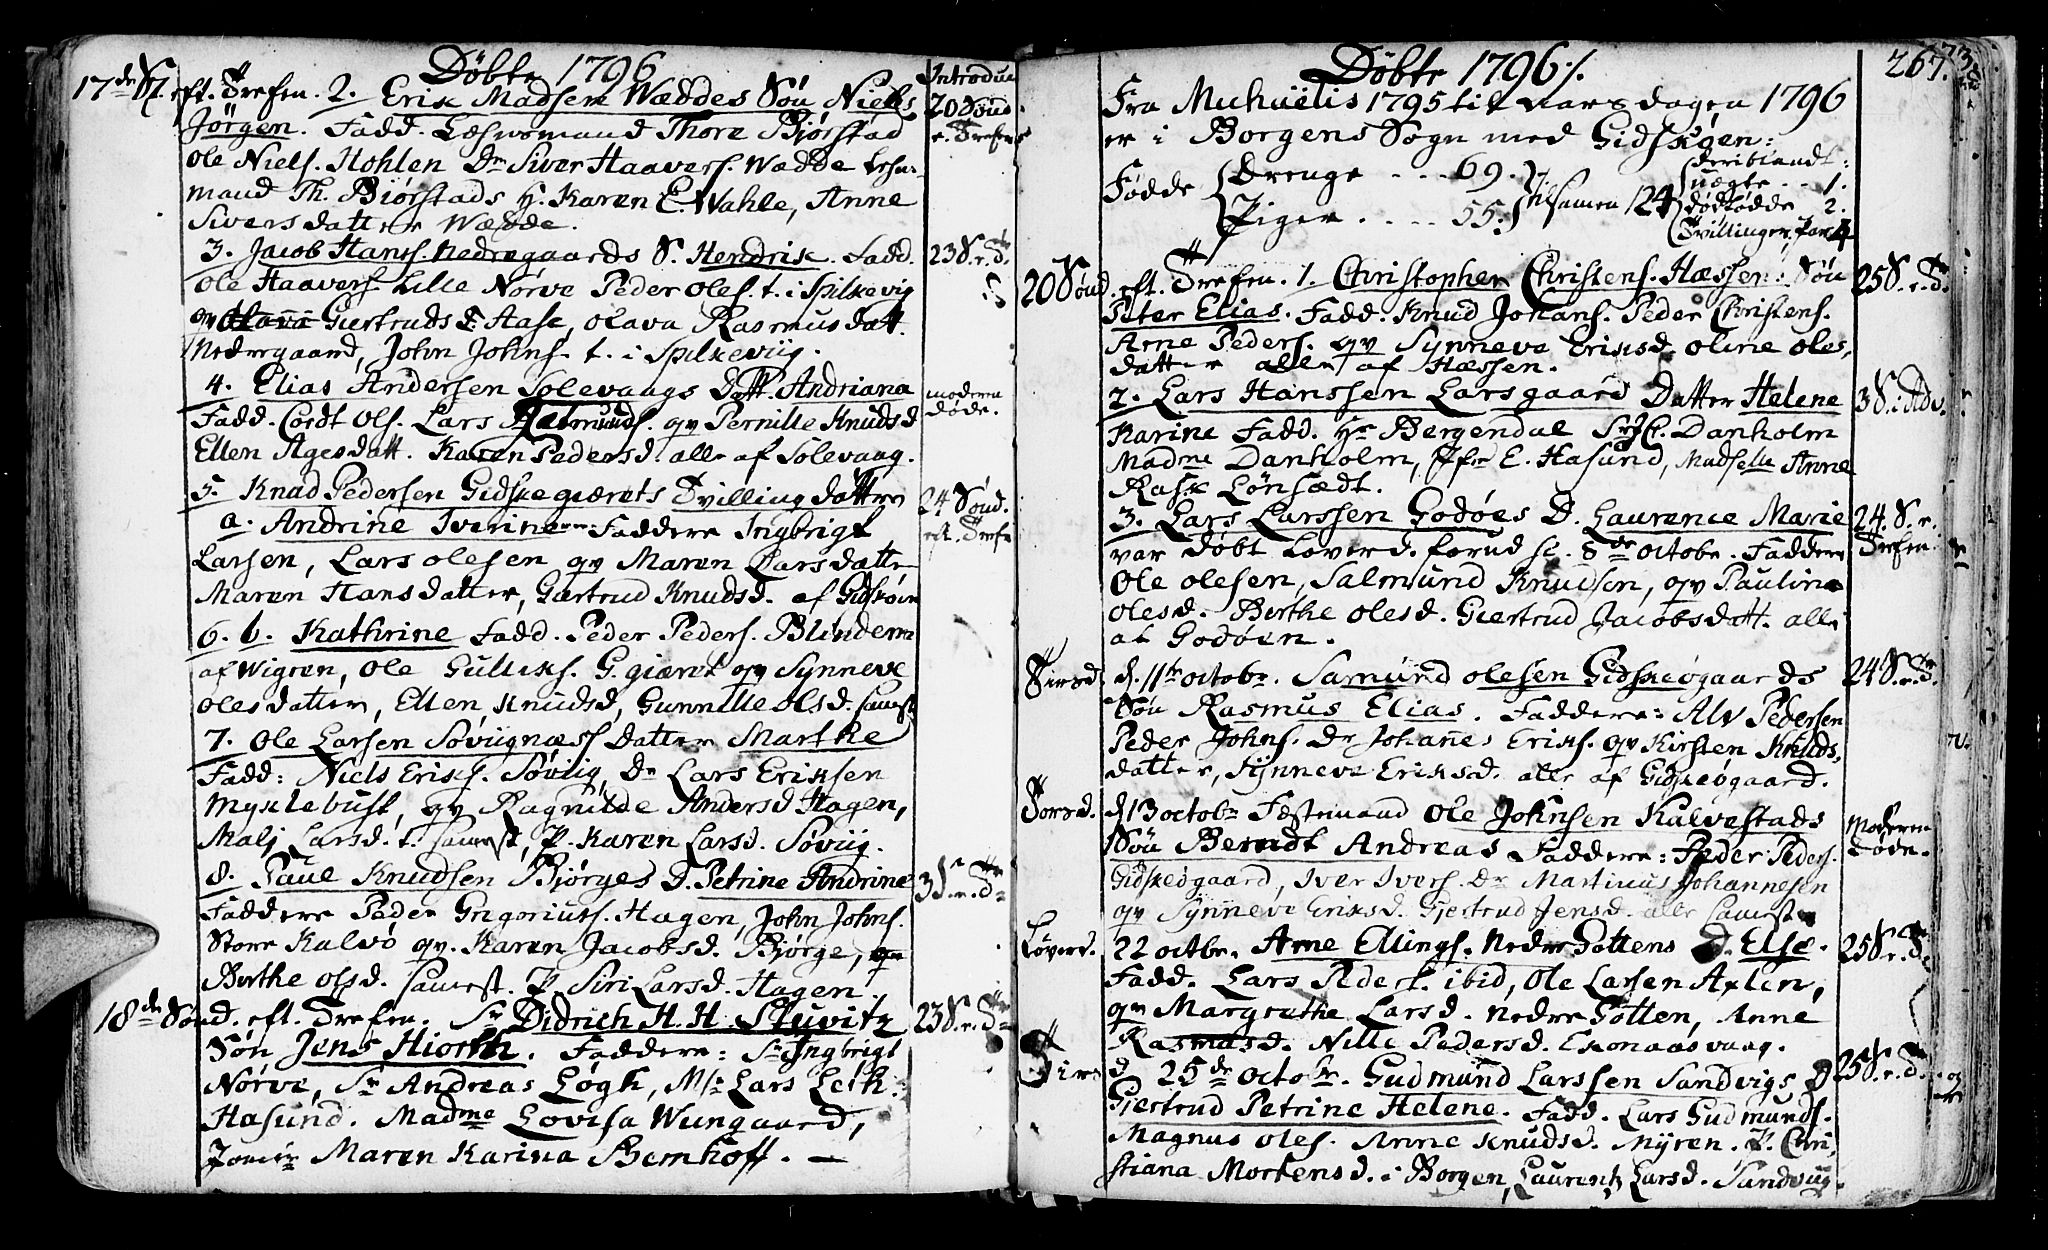 Döbte 1796
Introduc
17de S. eft. Trefen. 2. Erik Madsen Wæddes Sön Niels
20 Sönd
Jörgen. Fadd. Thore Bjørstad
e. Trefens
Ole Niels. Hohlen Dr Siver Haavers. Wædde
mand Th. Biørstads H. Karen E. Wahle, Anne
Siversdatter Wædde.
3. Jacob Hans. Nedregaards S. Hendrik. Fadd.
23 S. e. Tr.
Ole Haavers. Lille Nörve Peder Oles. t. i Spilkevig
qv Giertruds d. Aase, Olava Rasmusdatt.
Nedregaard, John Johns. t. i Spilkeviig.
4. Elias Andersen Solevaags Datt. Andriana
moderen
Fadd. Cordt Ols. Lars qv Pernille Knudsd
døde.
Ellen Agesdatt. Karen Pedersd. alle af Solevaag.
5. Knud Pedersen Gidskegiærets Tvilling döttre
24 Sönd.
a. Andrine Iverine Faddere Ingbrigt
eft. Trefn
Larsen, Lars Olesen qv Maren Larsdatter
Maren Hansdatter, Gærtrud Knudsd. af Gidskøen
6. b. Kathrine Fadd. Peder Peders. Blindem
af Wigren, Ole Gulliks. G. giæret qv Synneve
Olesdatter, Ellen Knudsd, Gunnille Olsd. samest
7. Ole Larsen Søvignæss Datter Marthe
Fadd: Niels Eriks. Søviig, Dr Lars Eriksen
Myklebust, qv Ragnilde Andersd Hagen,
Malj Larsd. t. samest, P. Karen Larsd. Søviig.
8. Paul Knudsen Bjørges D. Petrine Andrine
3 S. e. Tr
Faddere Peder Gregorius. Hagen, John Johns.
Store Kalvö qv. Karen Jacobsd. Bjørge,
Berthe Olsd. samest. P. Siri Larsd. Hagen.
18de Sönd. eft. Trefen. Sr Didrich H. H. Stuvitz
23 S. e. Tr
Sön Jens Hiorth. Faddere: Sr Ingbrigt
Nörve, Sr Andreas Løgh, Mr: Lars Leth.
Hasund. Madme Lovisa Wungaard,
Jomfr Maren Karina Bernhoff. —
267.
Döbte 1796 /.
Fra Michaëlis 1795 til aarsdagen 1796
er i Borgens Sogn med Gidskøen:
Fødde Drenge ... 69. tilsamen 124 deriblandt:
uægte .. 1.
Piger .... 55. dødfødde 2.
Tvillinger, Par 4
20 Sönd. eft. Trefen. 1. Christopher Christens. Hæssen: Sön
25 S. e. Tr.
Peter Elias. Fadd. Knud Johans. Peder Christens.
Arne Peders. qv Synneve Eriksd. Oline Oles,
datter alle af Hæssen.
2. Lars Hanssen Larsgaard Datter Helene
3 S. i Adv.
Karine Fadd. Hr Bergendal Sr Danholm
Madme Danholm, E. Hasund, Madselle Anne
Rask Lönsædt.
3. Lars Larssen Godöes D. Laurence Marie
24. S. e.
var døbt Löverd. forud sc. 8de Octobr. Faddere
Trefen.
Ole Olesen, Salmund Knudsen, qv Pauline
Olesd. Berthe Olesd. Giertrud Jacobsdatt. alle
af Godöen.
Tirsd. d. 11te Octobr. Samund Olesen Gidskeøgaards
24 S. e. Tr.
Sön Rasmus Elias. Faddere: Alv Pedersen
Peder Johns. Dr Johanes Eriks. qv Kirsten Knuds,
datter, Synneve Eriksd. alle af Gidskeøgaard.
Torsd. d 13 Octobr Fæstemand Ole Johnsen Kalvestads
Moderen
Sön Berndt Andreas Faddere: Peder Peders.
døde.
Gidskeøgaard, Iver Ivers. Dr Martinus Johannesen
qv Synneve Eriksd. Gjertrud Jensd. alle samest
Løverd. 22 Octbr. Arne Ellings. Nedre Gottens D. Else.
25 S. e. Tr
Fadd. Lars Peders. ibid, Ole Larsen Axlen,
qv Margrethe Larsd. Nedre Gotten, Anne
Rasmusd. Nille Pedersd. Exonaasvaag.
Tirs d 25de Octobr. Gudmund Larssen Sandvigs D
25 S. e. Tr.
Gjertrud Petrine Helene. Fadd. Lars Gudmunds.
Magnus Oles. Anne Knudsd. Myren. P. Chri,
stiana Mortensd. i Borgen, Laurentz Larsd. Sandvig.